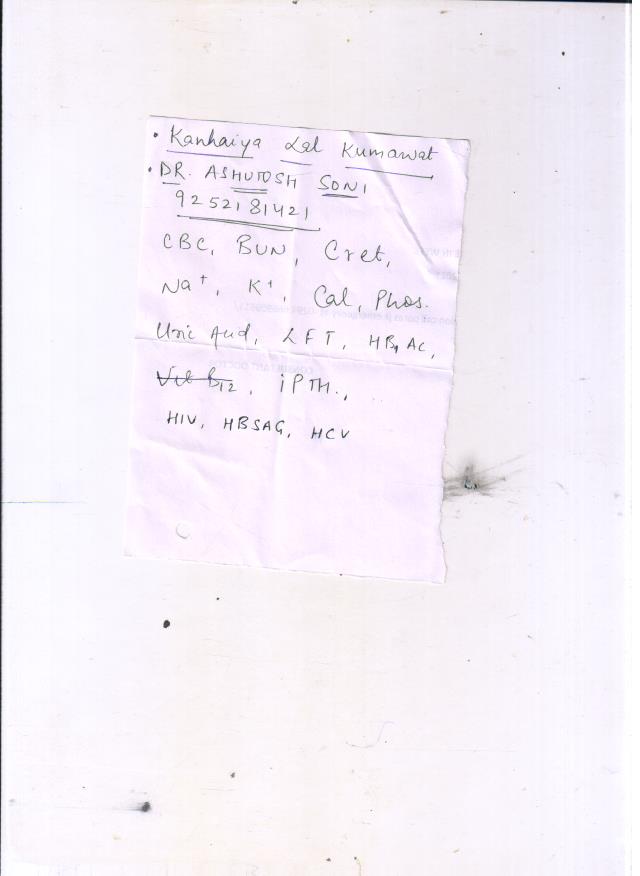 • Kanhaiya Lal Kumawat
• DR. ASHUTOSH SONI
9252181421
CBC, BUN, Cret,
Na⁺, K⁺, Cal, Phos.
Uric Acid, LFT, HB₁AC,
Vit B12, iPTH.,
HIV, HBSAG, HCV
CONSULTANT DOCTOR